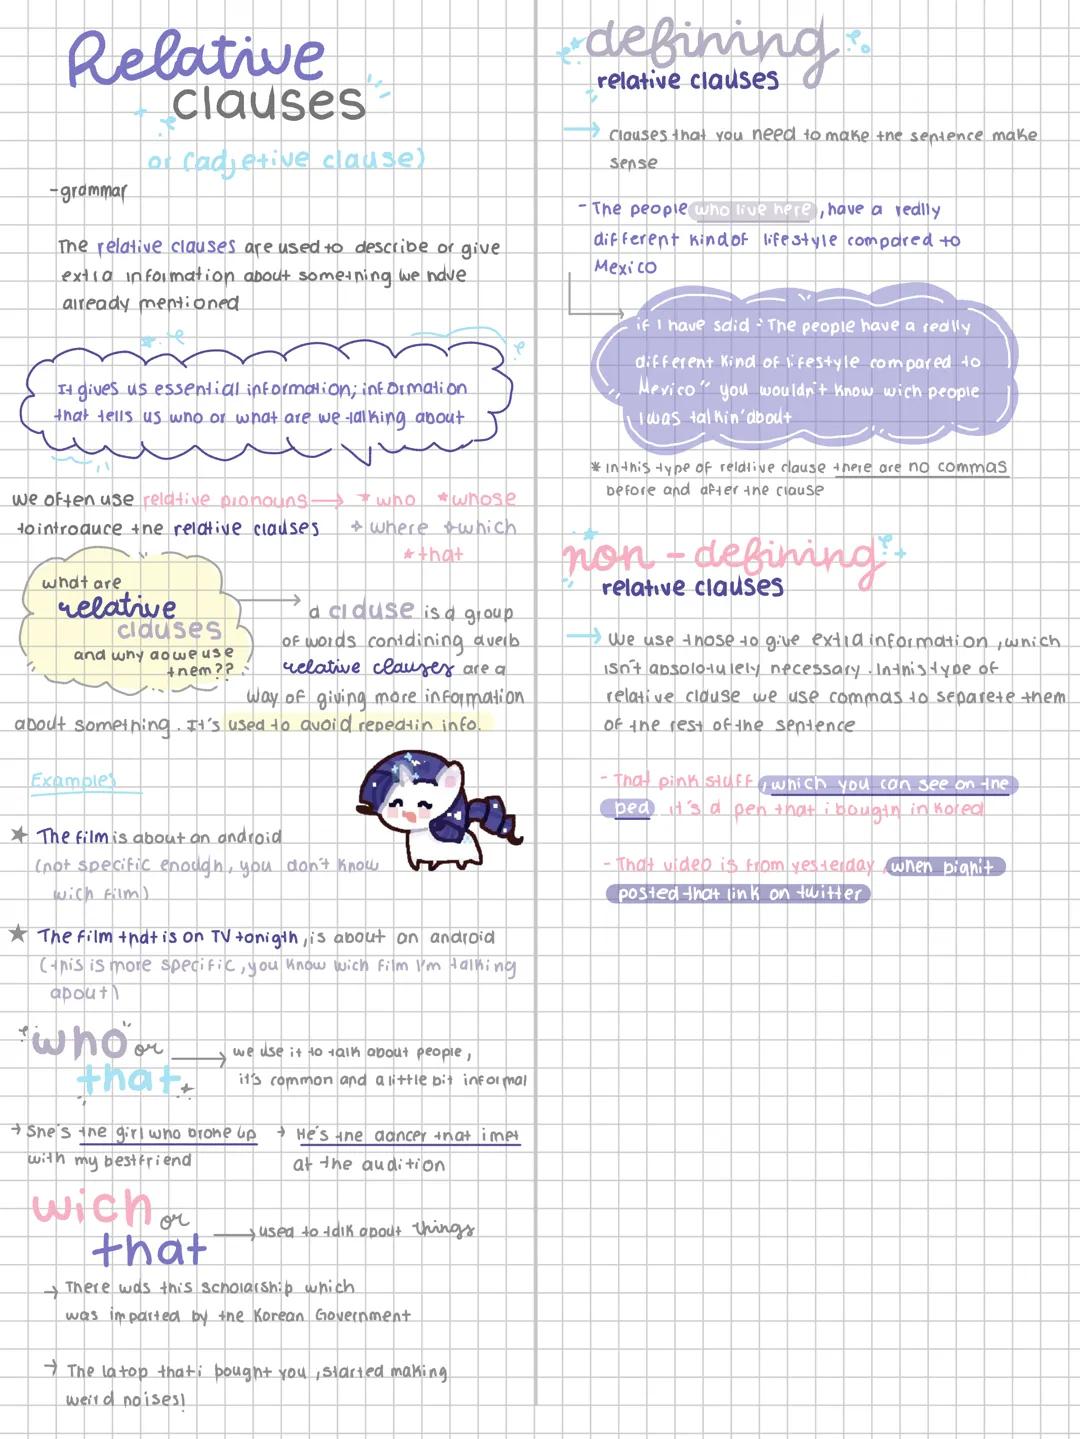 Relative
clauses
or (adjetive clause)
-grammar
The relative clauses are used to describe or give
extra information about something we have
already mentioned
It gives us essential information; information
that tells us who or what are we talking about
we often use relative pronouns → * who * whose
to introduce the relative clauses + where + which
* that
what are
relative
clauses
and why do we use
them??
a clause is a group
of words containing averb
relative clauses are a
way of giving more information
about something. It's used to avoid repeatin info.
Examples
★ The film is about an android
(not specific enough, you don't know
wich film)
★ The film that is on TV tonigth, is about an android
(this is more specific, you know wich film I'm talking
about)
"who" or
that
we use it to talk about people,
it's common and a little bit informal
→ She's the girl who broke up
with my bestfriend
→ He's the dancer that i met
at the audition
wich or
that
used to talk about things
→ There was this scholarship which
was imparted by the Korean Government
→ The latop that i bought you, started making
weird noises!
defining
relative clauses
→ Clauses that you need to make the sentence make
sense
- The people who live here, have a really
different kind of lifestyle compared to
Mexico
if I have said: "The people have a really
different kind of lifestyle compared to
Mexico" you wouldn't know wich people
I was talkin'about
* In this type of relative clause there are no commas
before and after the clause
non-defining
relative clauses
→ We use those to give extra information, which
isn't absolotulely necessary. In this type of
relative clause we use commas to separete them
of the rest of the sentence
- That pink stuff, which you can see on the
bed, it's a pen that i bougth in Korea
- That video is from yesterday, when bighit
posted that link on twitter